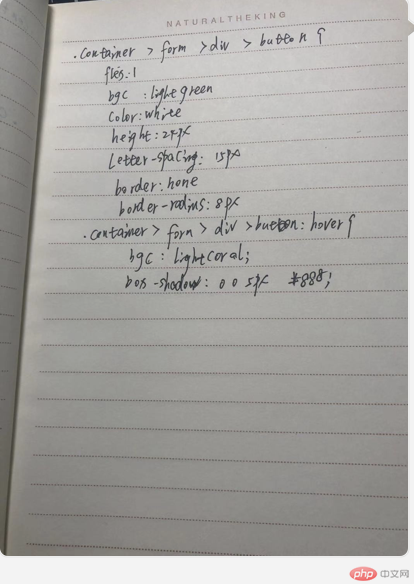 NATURALTHEKING
.container > form > div > button {
flex: 1
bgc : lightgreen
color: white
height: 24px
letter-spacing: 15px
border: none
border-radius: 8px
.container > form > div > button: hover {
bgc : lightcoral;
box-shadow: 0 0 5px #888;
php 中文网